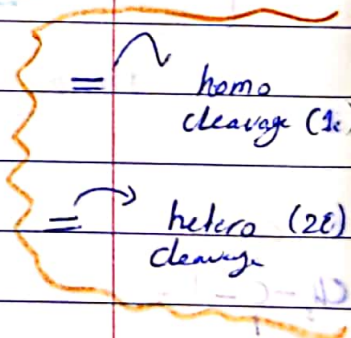 homo
cleavage (1e
hetero (2e)
cleavage